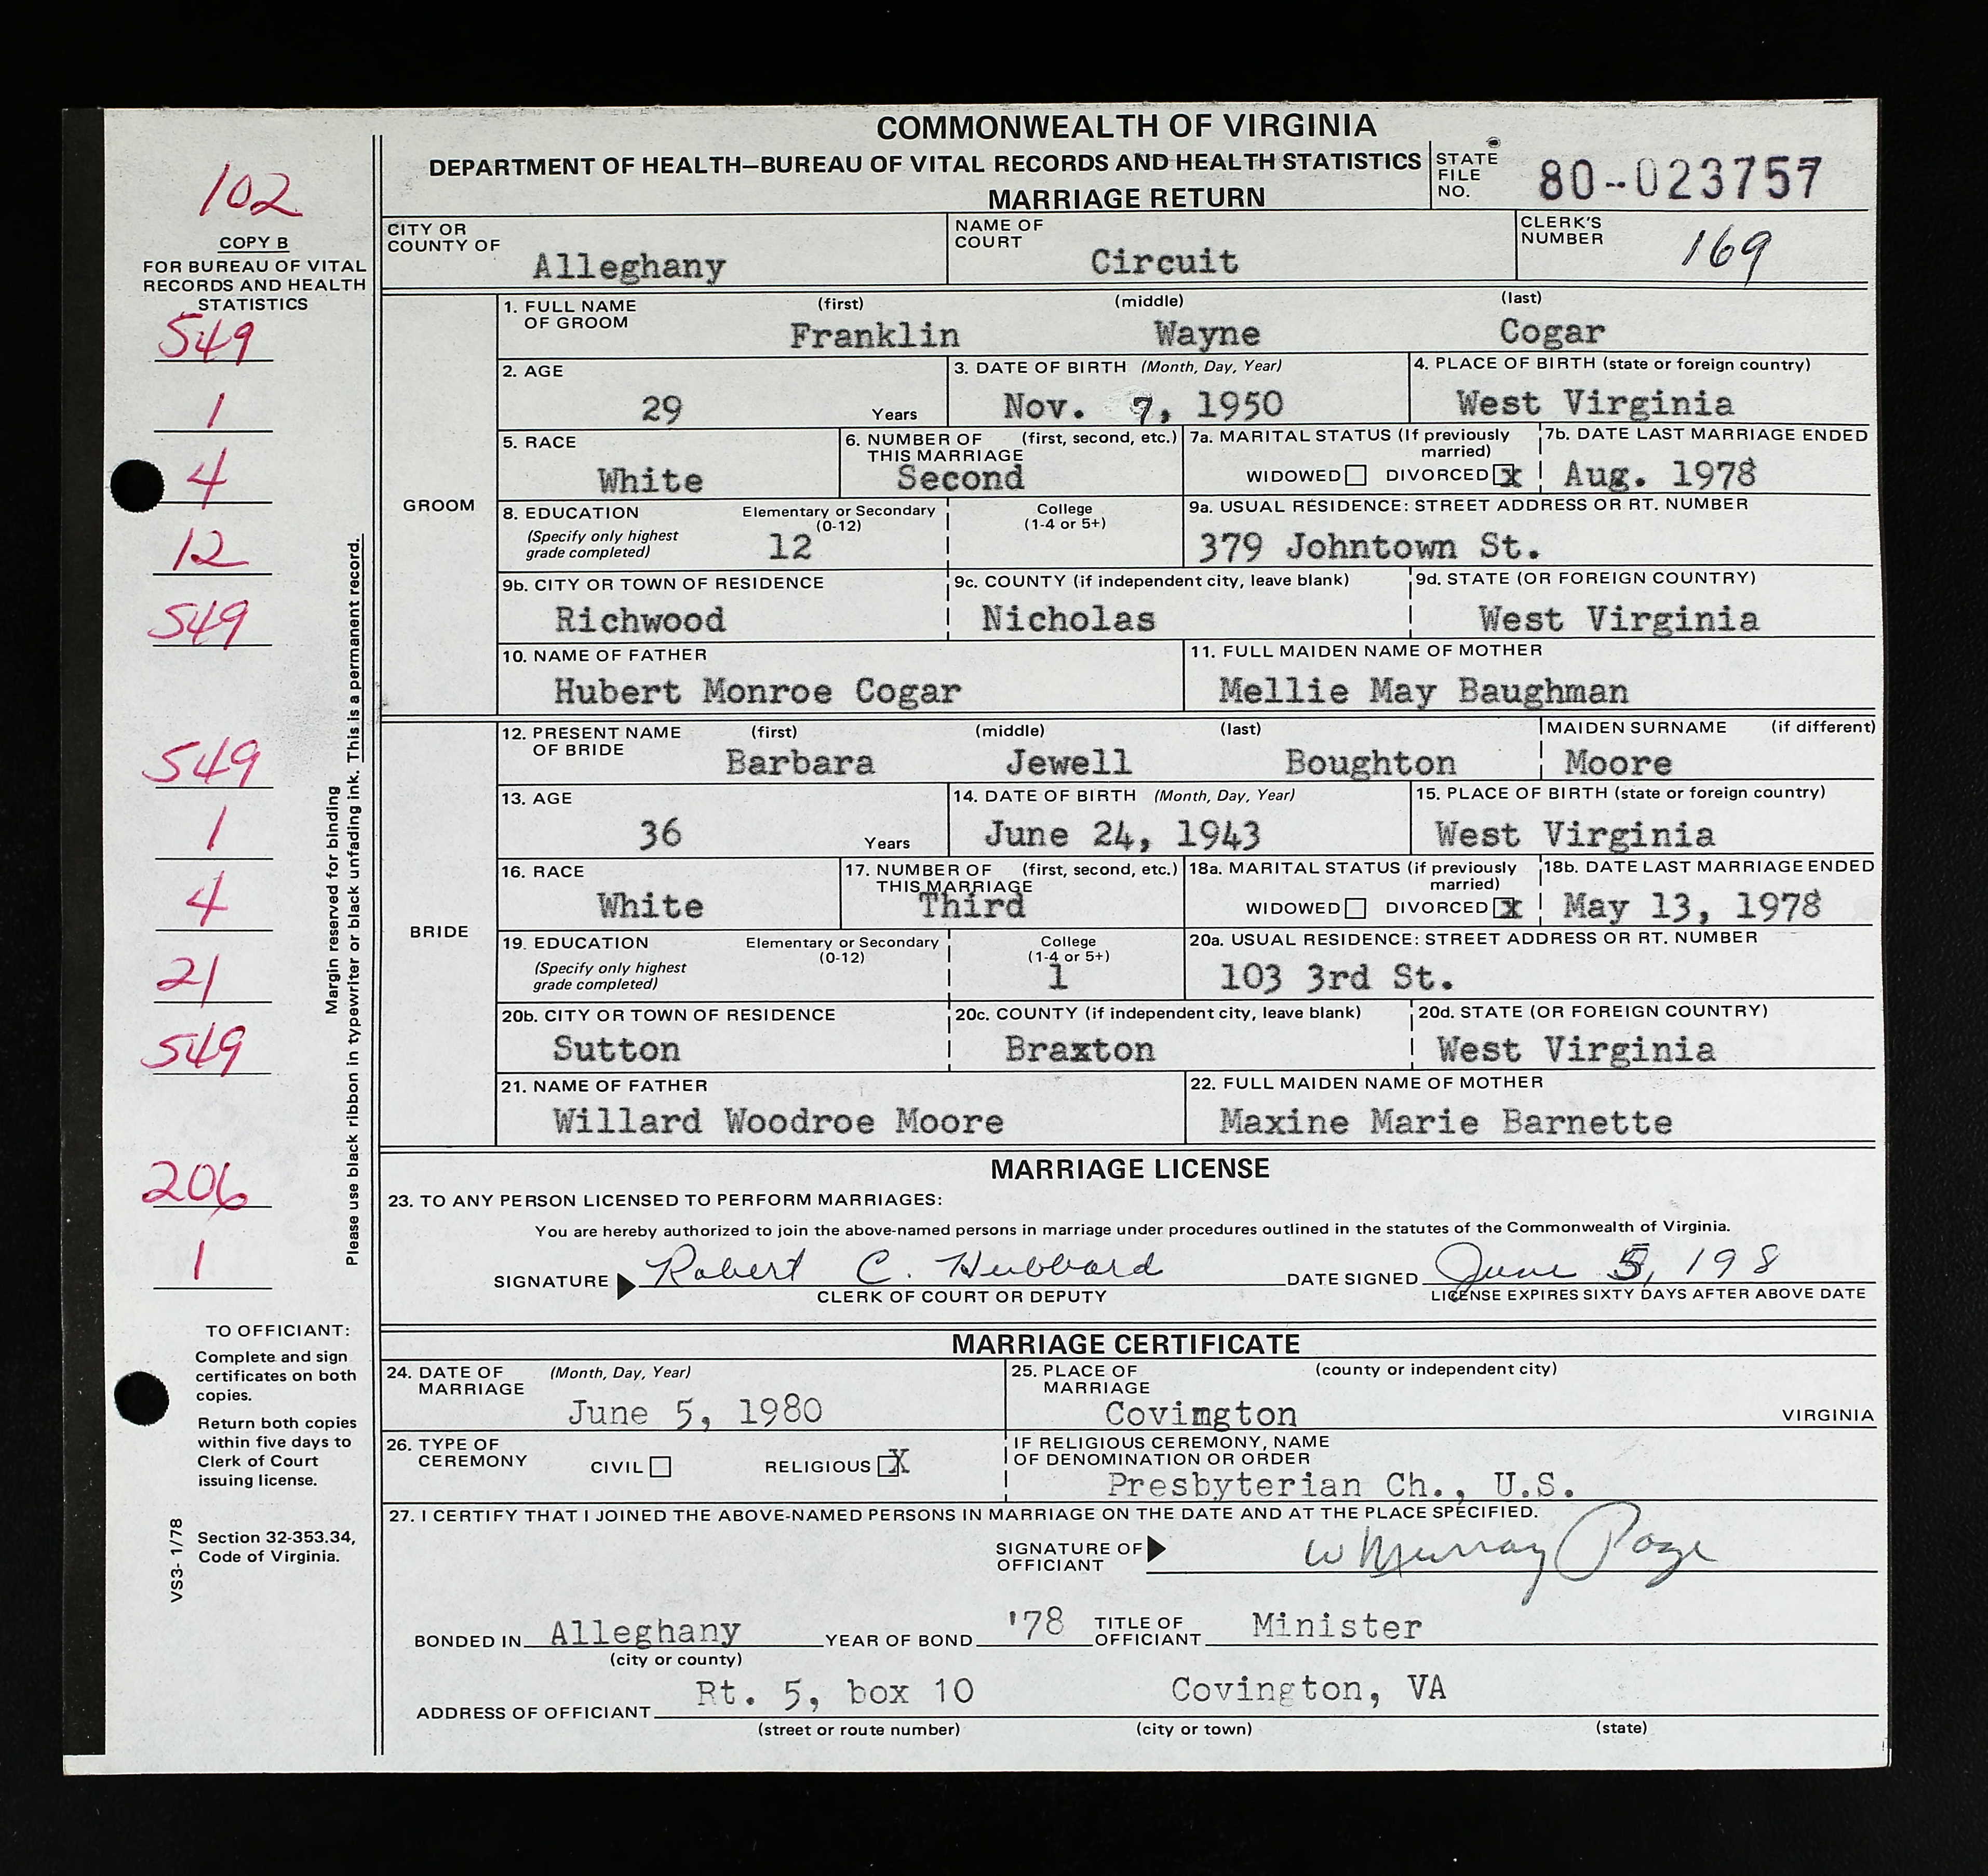 COMMONWEALTH OF VIRGINIA
DEPARTMENT OF HEALTH—BUREAU OF VITAL RECORDS AND HEALTH STATISTICS
MARRIAGE RETURN
STATE FILE NO. 80--023757
102
COPY B
FOR BUREAU OF VITAL
RECORDS AND HEALTH
STATISTICS
549
1
4
12
549
549
1
4
21
549
206
1
Margin reserved for binding
Please use black ribbon in typewriter or black unfading ink. This is a permanent record.
TO OFFICIANT:
Complete and sign
certificates on both
copies.
Return both copies
within five days to
Clerk of Court
issuing license.
Section 32-353.34,
Code of Virginia.
VS3- 1/78
CITY OR COUNTY OF Alleghany
NAME OF COURT Circuit
CLERK'S NUMBER 169
GROOM
1. FULL NAME OF GROOM (first) (middle) (last)
Franklin Wayne Cogar
2. AGE 29 Years
3. DATE OF BIRTH (Month, Day, Year) Nov. 7, 1950
4. PLACE OF BIRTH (state or foreign country) West Virginia
5. RACE White
6. NUMBER OF THIS MARRIAGE (first, second, etc.) Second
7a. MARITAL STATUS (If previously married) WIDOWED DIVORCED x
7b. DATE LAST MARRIAGE ENDED Aug. 1978
8. EDUCATION (Specify only highest grade completed) Elementary or Secondary (0-12) 12 College (1-4 or 5+)
9a. USUAL RESIDENCE: STREET ADDRESS OR RT. NUMBER 379 Johntown St.
9b. CITY OR TOWN OF RESIDENCE Richwood
9c. COUNTY (if independent city, leave blank) Nicholas
9d. STATE (OR FOREIGN COUNTRY) West Virginia
10. NAME OF FATHER Hubert Monroe Cogar
11. FULL MAIDEN NAME OF MOTHER Mellie May Baughman
BRIDE
12. PRESENT NAME OF BRIDE (first) (middle) (last) MAIDEN SURNAME (if different)
Barbara Jewell Boughton Moore
13. AGE 36 Years
14. DATE OF BIRTH (Month, Day, Year) June 24, 1943
15. PLACE OF BIRTH (state or foreign country) West Virginia
16. RACE White
17. NUMBER OF THIS MARRIAGE (first, second, etc.) Third
18a. MARITAL STATUS (if previously married) WIDOWED DIVORCED x
18b. DATE LAST MARRIAGE ENDED May 13, 1978
19. EDUCATION (Specify only highest grade completed) Elementary or Secondary (0-12) College (1-4 or 5+) 1
20a. USUAL RESIDENCE: STREET ADDRESS OR RT. NUMBER 103 3rd St.
20b. CITY OR TOWN OF RESIDENCE Sutton
20c. COUNTY (if independent city, leave blank) Braxton
20d. STATE (OR FOREIGN COUNTRY) West Virginia
21. NAME OF FATHER Willard Woodroe Moore
22. FULL MAIDEN NAME OF MOTHER Maxine Marie Barnette
MARRIAGE LICENSE
23. TO ANY PERSON LICENSED TO PERFORM MARRIAGES:
You are hereby authorized to join the above-named persons in marriage under procedures outlined in the statutes of the Commonwealth of Virginia.
SIGNATURE Robert C. Hubbard DATE SIGNED June 5, 198
CLERK OF COURT OR DEPUTY LICENSE EXPIRES SIXTY DAYS AFTER ABOVE DATE
MARRIAGE CERTIFICATE
24. DATE OF MARRIAGE (Month, Day, Year) June 5, 1980
25. PLACE OF MARRIAGE (county or independent city) Covington VIRGINIA
26. TYPE OF CEREMONY CIVIL RELIGIOUS X
IF RELIGIOUS CEREMONY, NAME OF DENOMINATION OR ORDER Presbyterian Ch., U.S.
27. I CERTIFY THAT I JOINED THE ABOVE-NAMED PERSONS IN MARRIAGE ON THE DATE AND AT THE PLACE SPECIFIED.
SIGNATURE OF OFFICIANT W Murray Page
BONDED IN Alleghany YEAR OF BOND '78 TITLE OF OFFICIANT Minister
(city or county)
ADDRESS OF OFFICIANT Rt. 5, box 10 Covington, VA
(street or route number) (city or town) (state)